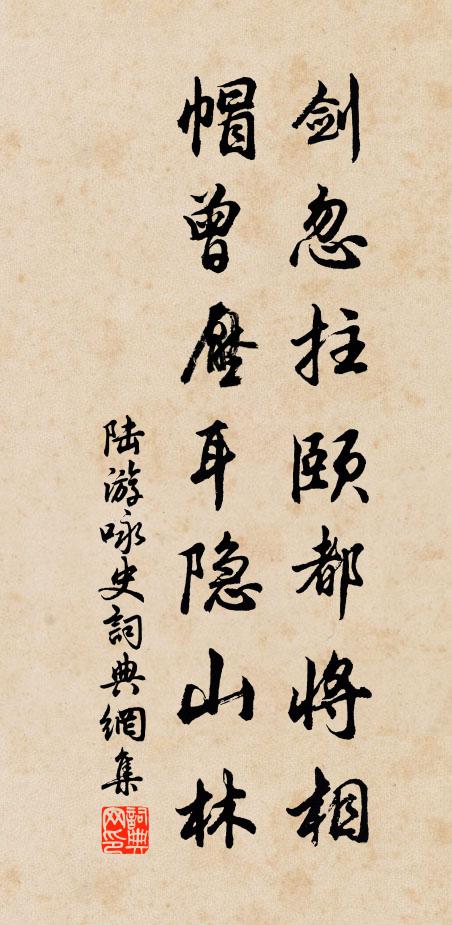 剑忽拄颐都将相
帽曾压耳隐山林
陆游咏史詞典網集
詞典网印